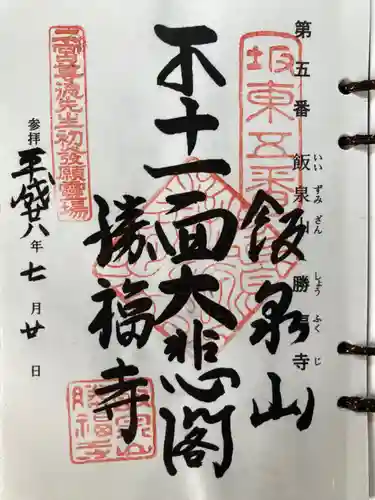 第五番 飯泉山 勝福寺
いい ずみ ざん しょう ふく じ
坂東五番
飯泉山
十一面大悲閣
勝福寺
二宮尊徳先生初發願靈場
参拝 平成廿八年七月廿日
飯泉山
勝福寺